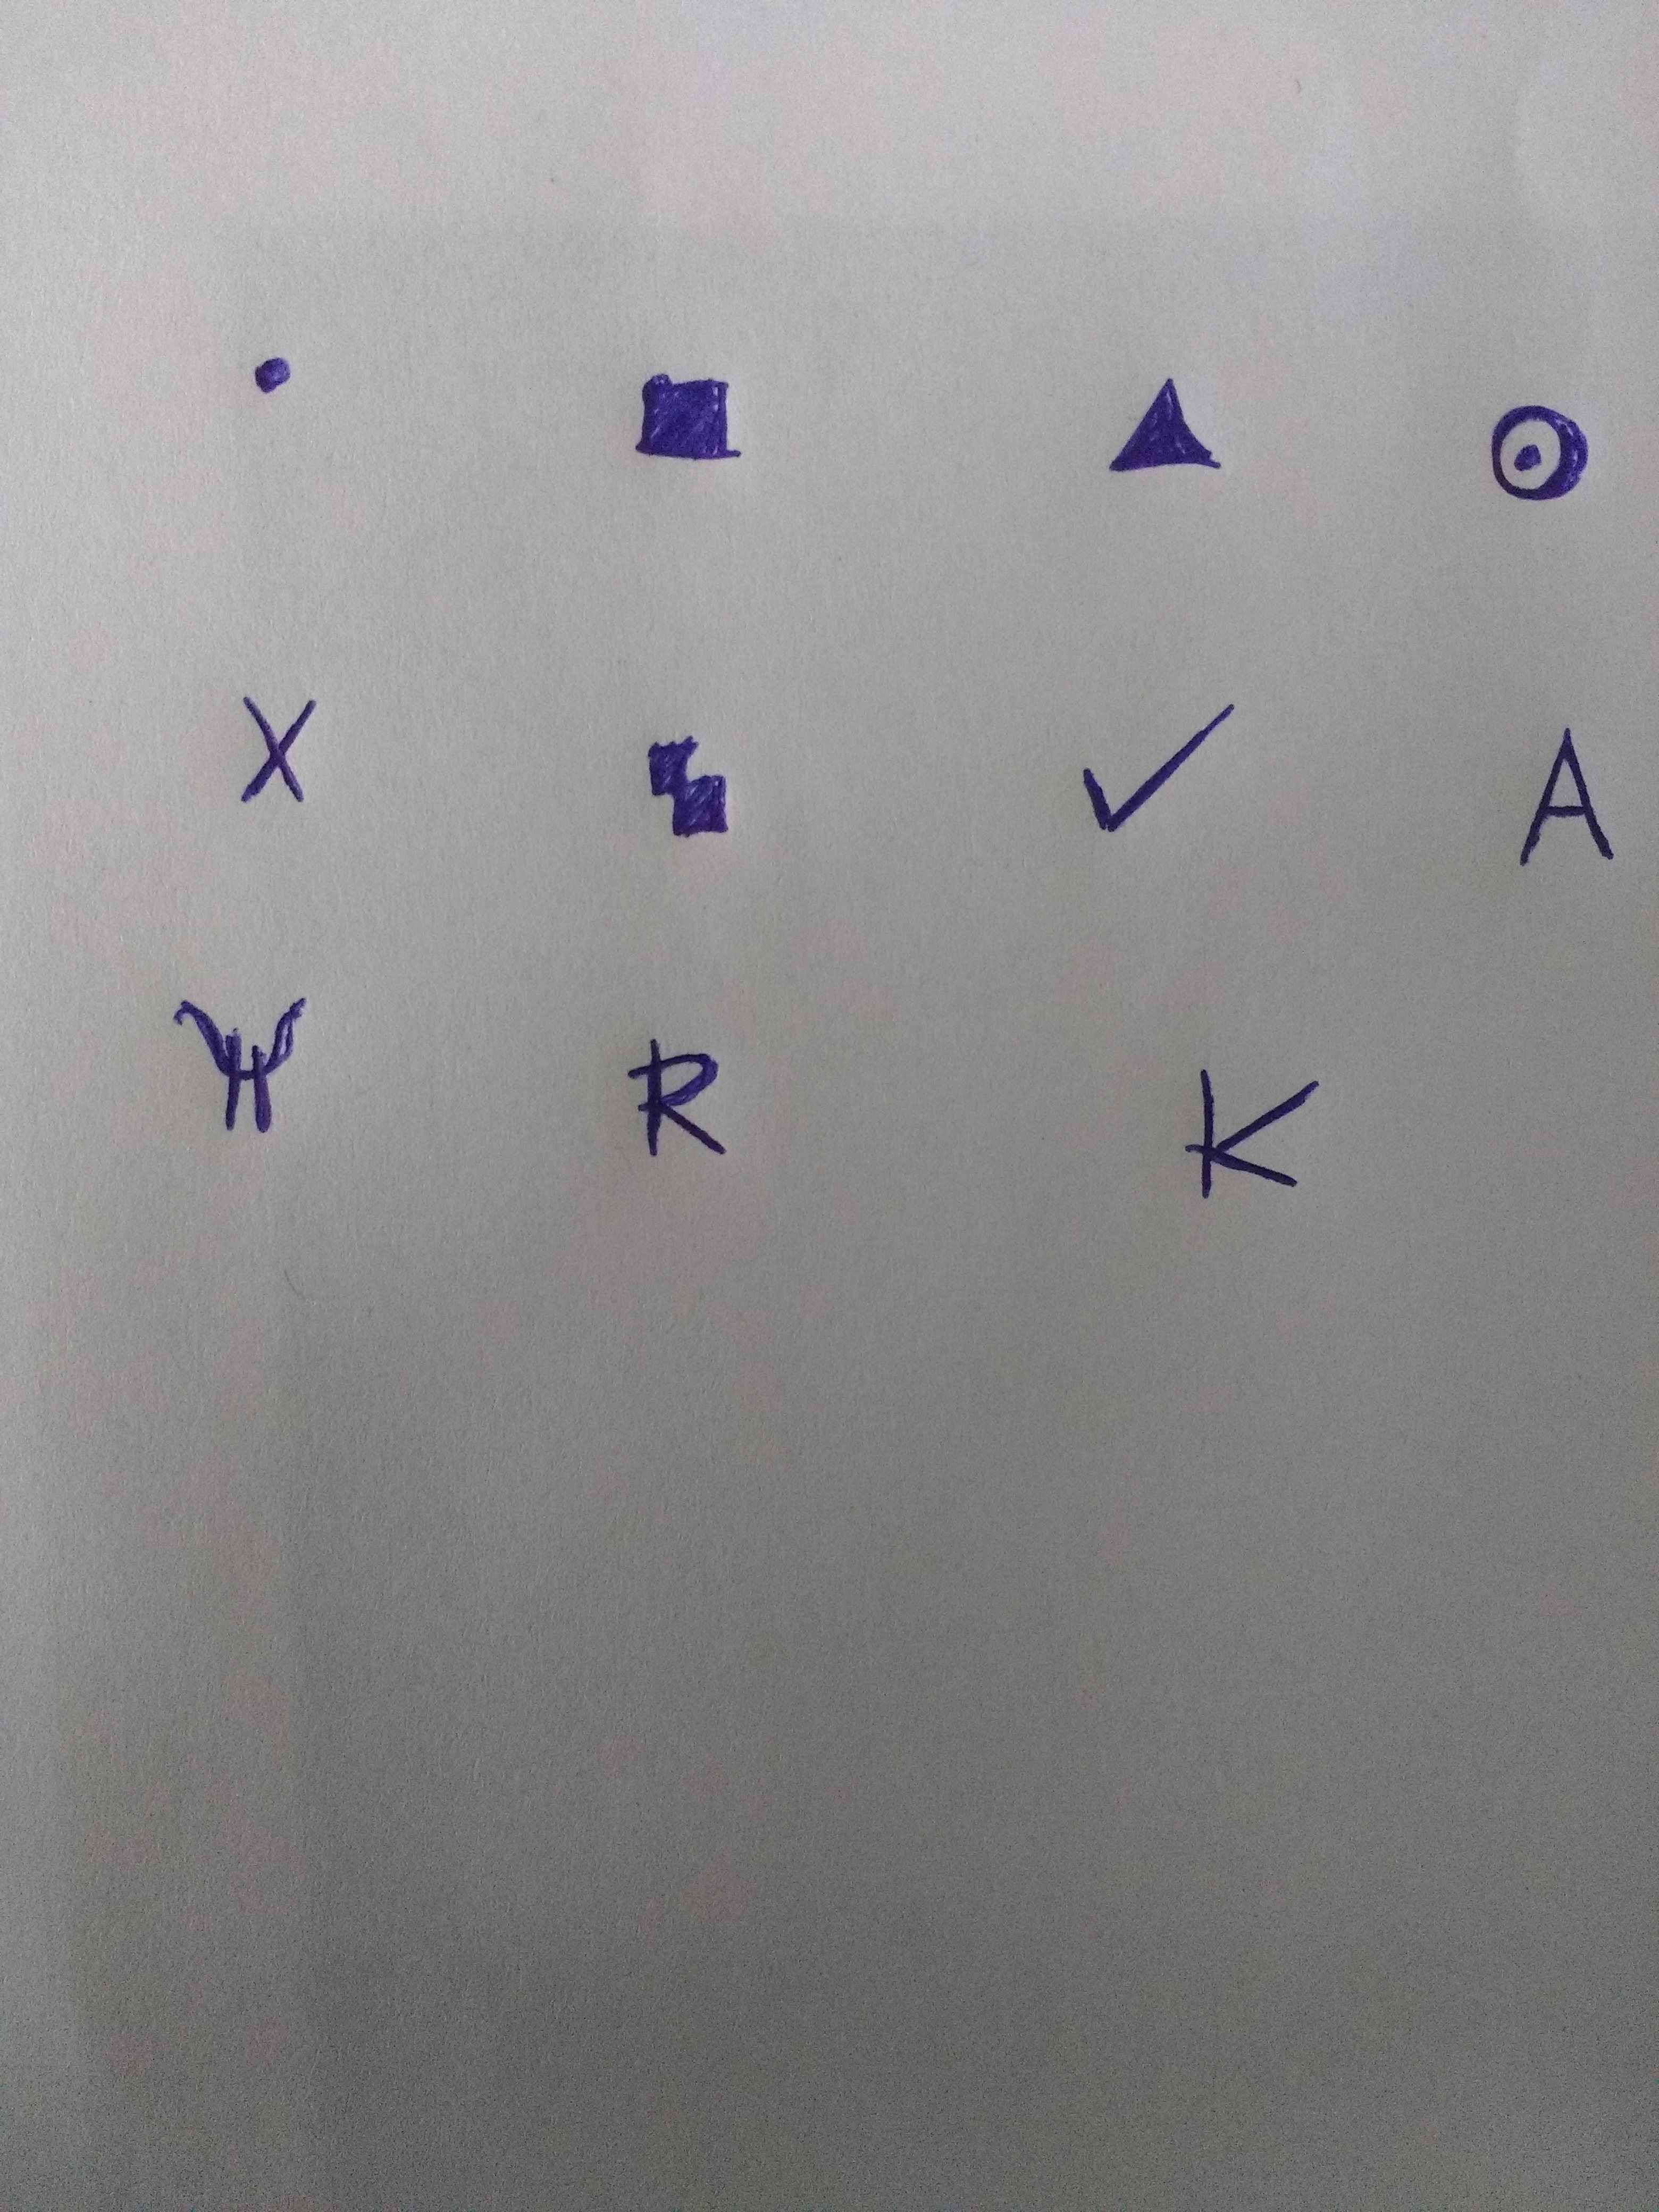 • ■ ▲ ☉
X ▚ ✓ A
R K